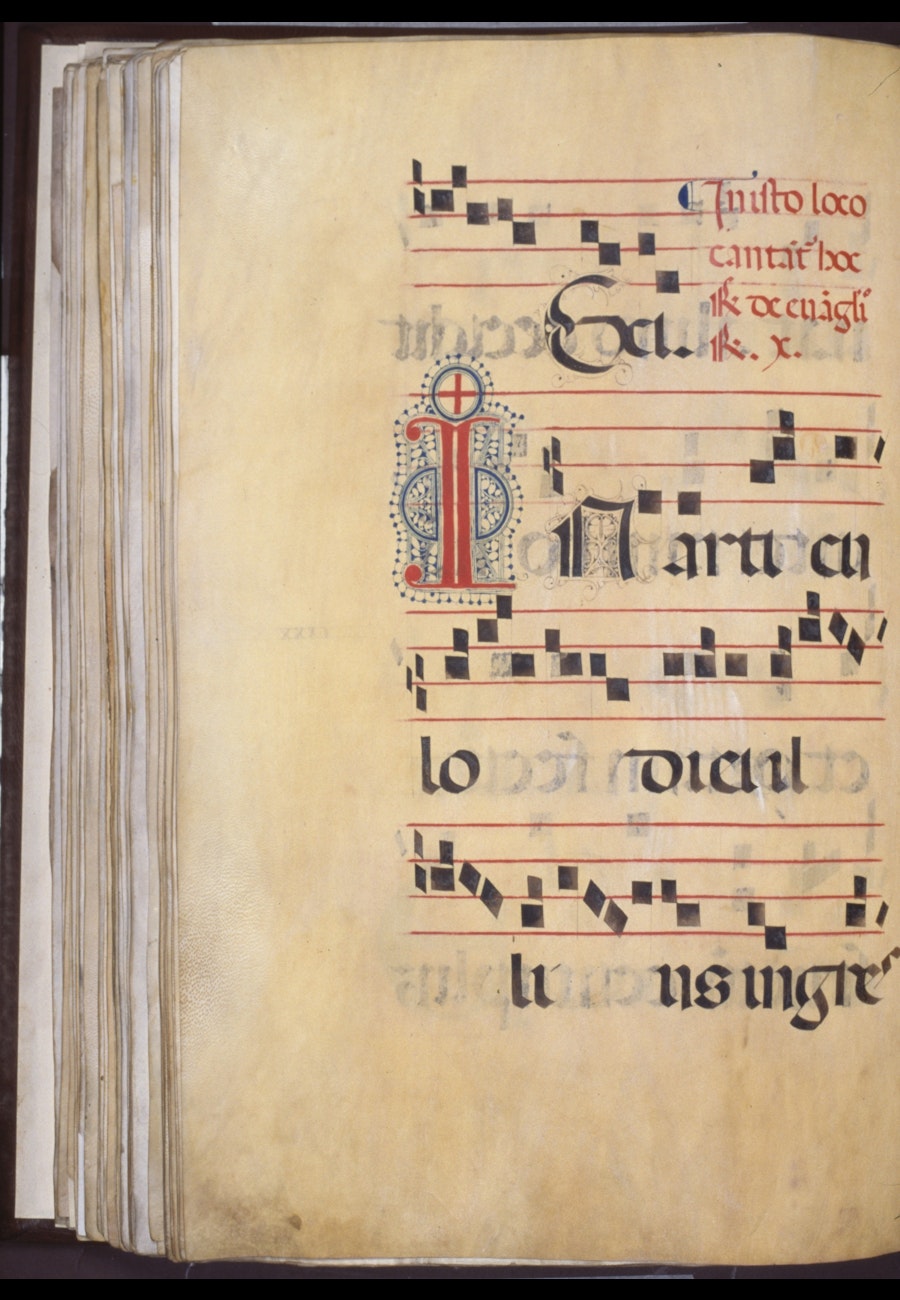 In isto loco
cantat̃ hoc
℟ de euāgl̃i
℟. x.
Edei.
IN articu
lo diei il
li us ingre